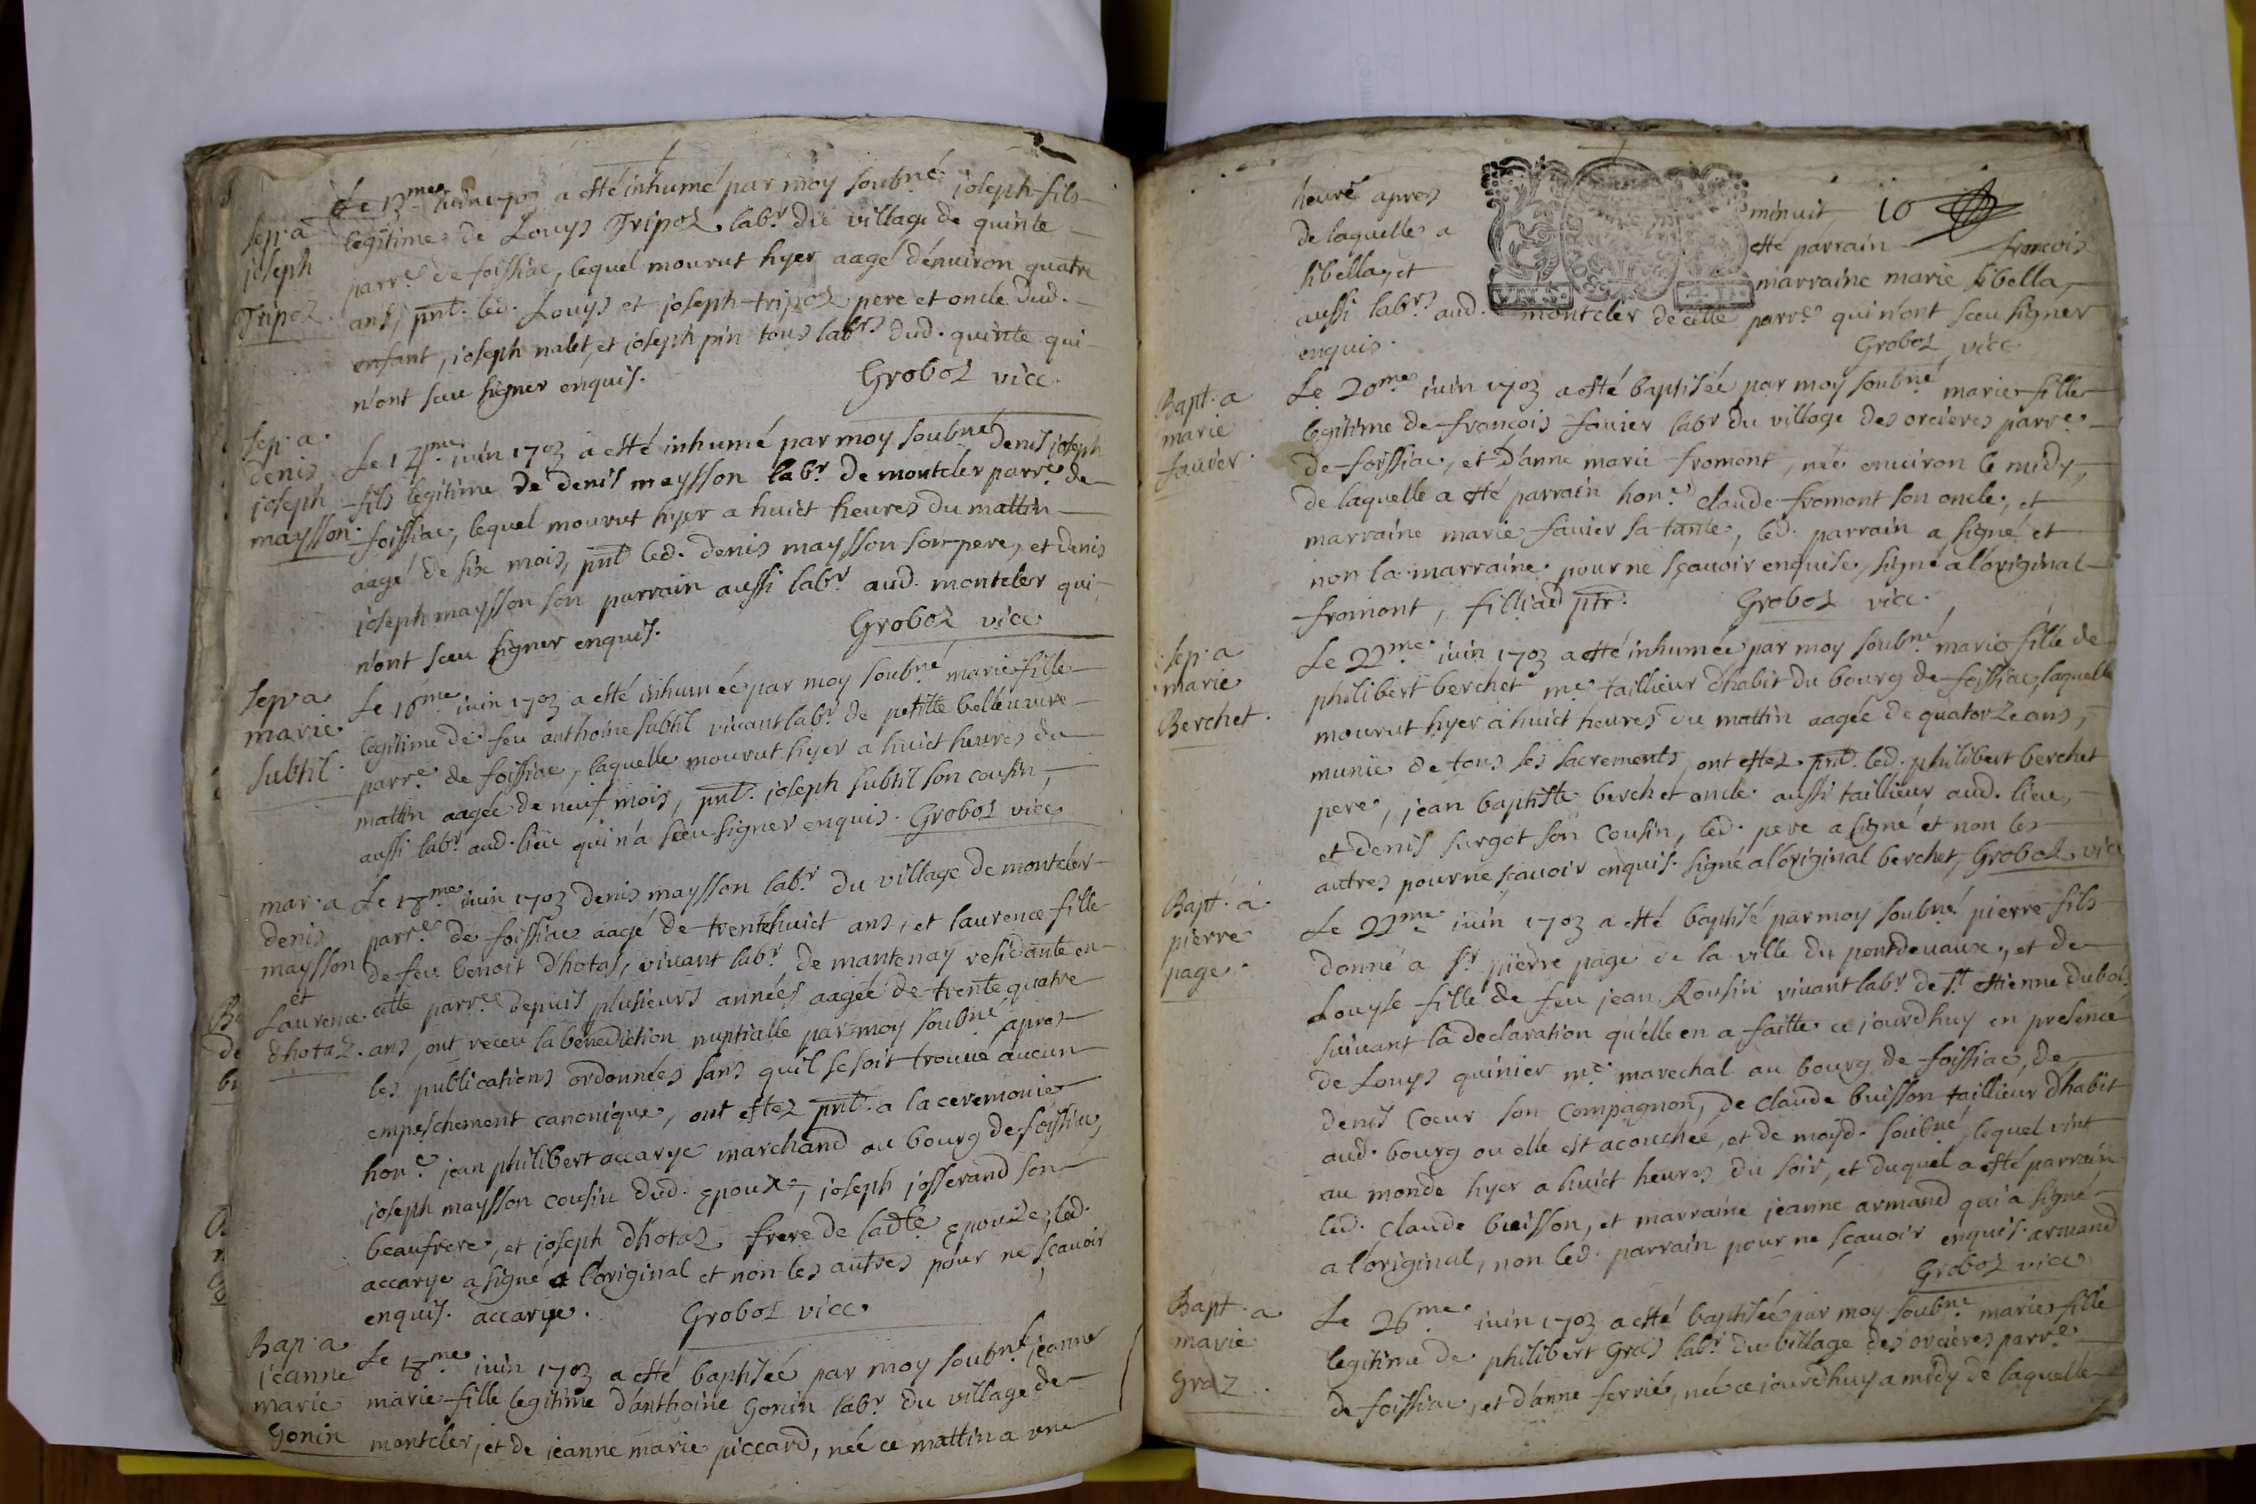 Sep. a
joseph
Tripoz.
Le 13me juin 1703 a esté inhumé par moy soubné joseph fils
legitime de Louys Tripoz labr du village de quinte
parre de foissiac, lequel mourut hyer aagé d'enuiron quatre
ans, pnt. led. Louys et joseph tripoz pere et oncle dud.
enfant, joseph nalet, et joseph pin tous labrs dud. quinte qui
n'ont sceu signer enquis. Groboz vicc.
Sep. a
denis
joseph
maysson.
Le 14me juin 1703 a esté inhumé par moy soubné denis joseph
fils legitime de denis maysson labr. de montcler parre. de
foissiac, lequel mourut hyer a huict heures du mattin
aagé de six mois, pnt led. denis maysson son pere, et denis
joseph maysson son parrain aussi labr aud. montcler qui
n'ont sceu signer enquis. Groboz vicc.
Sep. a
marie
subtil.
Le 16me juin 1703 a esté inhumée par moy soubné marie fille
legitime de feu anthoine subtil vivant labr. de petitte belleuaure
parre. de foissiac, laquelle mourut hyer a huict heures du
mattin aagée de neuf mois, pnt. joseph subtil son cousin,
aussi labr aud. lieu qui n'a sceu signer enquis. Groboz vicc
mar. a
denis
maysson
et
Laurence
dhotaz.
Le 18me juin 1703 denis maysson labr. du village de montcler
parre. de foissiac aagé de trentehuict ans, et laurence fille
de feu benoit dhotas, vivant labr. de mantenay residante en
cette parre depuis plusieurs années aagée de trente quatre
ans, ont receu la benediction nuptialle par moy soubné apres
les publications ordonnées sans quil se soit trouué aucun
empeschement canonique, ont estez pnt. a la ceremonie
hone. jean philibert accarye marchand au bourg de foissiac,
joseph maysson cousin dud. epoux, joseph josserand son
beaufrere, et joseph dhotaz frere de ladte epouse, led.
accarye a signé a l'original et non les autres pour ne sçauoir
enquis. accarye. Groboz vicc.
Bap. a
jeanne
marie
Gonin
Le 18me juin 1703 a esté baptisée par moy soubné jeanne
marie fille legitime d'anthoine Gonin labr. du village de
montcler, et de jeanne marie piccard, née ce mattin a une
heure apres minuit, 10
de laquelle a esté parrain francois
sibella, et marraine marie sibella,
aussi labrs aud. montcler de cette parre qui n'ont sceu signer
enquis. Groboz, vicc
Bapt. a
marie
fauier.
Le 20me juin 1703 a esté baptisée par moy soubné marie fille
legitime de francois fauier labr du village des orcieres parre
de foissiac, et d'anne marie fromont, née enuiron le midy,
de laquelle a esté parrain hone. claude fromont son oncle, et
marraine marie fauier sa tante, led. parrain a signé et
non la marraine pour ne sçauoir enquise, signé a l'original
fromont, filliard ptr. Groboz vicc.
Sep. a
marie
Berchet.
Le 22me juin 1703 a esté inhumée par moy soubné marie fille de
philibert berchet me taillieur dhabit du bourg de foissiac, laquelle
mourut hyer a huict heures du mattin aagée de quatorze ans,
munie de tous ses sacrements, ont estez pnt. led. philibert berchet
pere, jean baptiste berchet oncle aussi taillieur aud. lieu,
et denis surgot son cousin, led. pere a signé et non les
autres pour ne scauoir enquis. signé a l'original berchet, Groboz vicc
Bapt. a
pierre
page.
Le 22me juin 1703 a esté baptisé par moy soubné pierre fils
donné a sr pierre page de la ville du pontdeuaux, et de
Louyse fille de feu jean Rousin vivant labr. de st. ettienne dubois
suiuant la declaration qu'elle en a faitte ce jourdhuy en presence
de Louys quinier me marechal au bourg de foissiac, de
denis Coeur son compagnon, de claude buisson taillieur dhabit
aud. bourg ou elle est acouchée, et de moyd. soubné, lequel vint
au monde hyer a huict heures du soir, et duquel a esté parrain
led. claude buisson, et marraine jeanne armand qui a signé
a l'original, non led. parrain pour ne scauoir enquis. armand
Groboz vicc
Bapt. a
marie
Graz.
Le 26me juin 1703 a esté baptisée par moy soubné marie fille
legitime de philibert Gras labr. du village des orcieres parre
de foissiac, et d'anne ferrié, née ce jourdhuy a midy de laquelle